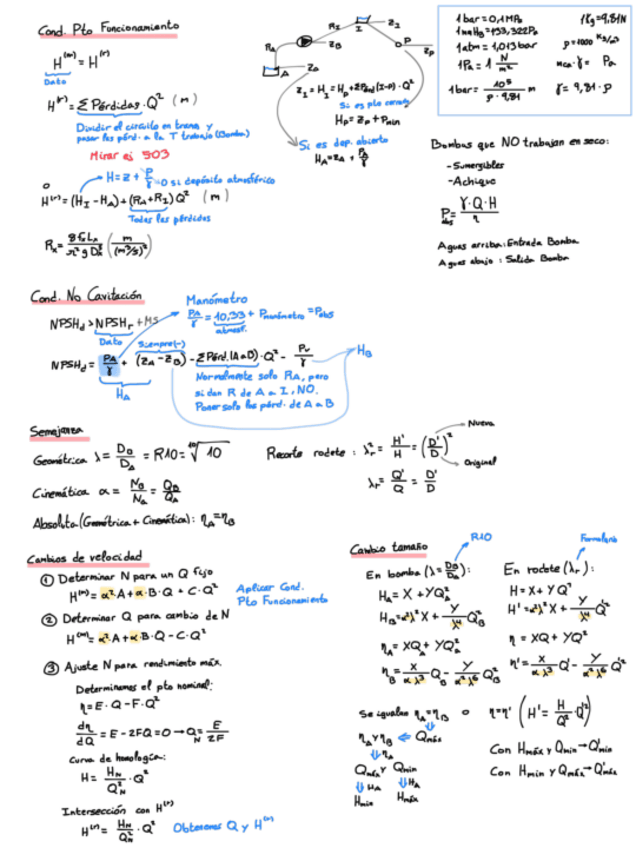 Cond. Pto Funcionamiento
H⁽ᵐ⁾ = H⁽ʳ⁾
Dato
H⁽ʳ⁾ = Σ Pérdidas · Q² (m)
Dividir el circuito en trams y
pasar las pérd. a la T trabajo (Bomba)
Mirar ej 503
H = z + P/γ → 0 si depósito atmosférico
o
H⁽ʳ⁾ = (H_I - H_A) + (R_A + R_I) Q² (m)
Todas las pérdidas
R_x = 8 f_x L_x / π² g D_x⁵ (m / (m³/s)²)
R_I I z_I
R_A B z_B P z_P
A z_A
z_I = H_I = H_P + Σ Pérd (I-P) · Q²
Si es pto cerrado
H_P = z_P + P_min
Si es dep. abierto
H_A = z_A + P_A/γ
1 bar = 0,1 MPa
1 mmHg = 133,322 Pa
1 atm = 1,013 bar
1 Pa = 1 N/m²
1 bar = 10⁵ / ρ · 9,81 m
1 kg = 9,81 N
ρ = 1000 kg/m³
mca · γ = Pa
γ = 9,81 · ρ
Bombas que NO trabajan en seco:
- Sumergibles
- Achique
P_abs = γ · Q · H / η
Aguas arriba: Entrada Bomba
Aguas abajo: Salida Bomba
Cond. No Cavitación
NPSH_d > NPSH_r + MS
Dato
Manómetro
P_A/γ = 10,33 + P_manómetro = P_abs
atmosf.
Siempre (-)
NPSH_d = P_A/γ + (z_A - z_B) - Σ Pérd. (A a B) · Q² - P_v/γ
H_A
H_B
Normalmente solo R_A, pero
si dan R de A a I, NO.
Poner solo las pérd. de A a B
Semejanza
Geométrica λ = D_B/D_A = R10 = ¹⁰√10
Cinemática α = N_B/N_A = Q_B/Q_A
Absoluta (Geométrica + Cinemática): η_A = η_B
Recorte rodete: λ_r² = H'/H = (D'/D)²
Nueva
Original
λ_r = Q'/Q = D'/D
Cambios de velocidad
① Determinar N para un Q fijo
H⁽ᵐ⁾ = α² · A + α · B · Q + C · Q²
② Determinar Q para cambio de N
H⁽ᵐ⁾ = α² · A + α · B · Q - C · Q²
Aplicar Cond.
Pto Funcionamiento
③ Ajuste N para rendimiento máx.
Determinamos el pto nominal:
η = E · Q - F · Q²
dη/dQ = E - 2FQ = 0 → Q_N = E/2F
Curva de homología:
H = H_N/Q_N² · Q²
Intersección con H⁽ʳ⁾
H⁽ʳ⁾ = H_N/Q_N² · Q² Obtenemos Q y H⁽ᵐ⁾
Cambio tamaño
R10
En bomba (λ = D_B/D_A):
H_A = X + YQ_A²
H_B = α²λ² X + Y/λ⁴ Q_B²
η_A = XQ_A + YQ_A²
η_B = X/αλ³ Q_B - Y/α²λ⁶ Q_B²
Formulario
En rodete (λ_r):
H = X + YQ²
H' = α²λ² X + Y/λ⁴ Q'²
η = XQ + YQ²
η' = X/αλ³ Q' - Y/α²λ⁶ Q'²
Se igualan η_A = η_B o η = η' (H' = H/Q² · Q'²)
η_A y η_B ⇐ Q_máx
⇓ η_A
Q_máx y Q_min
⇓ H_A ⇓ H_A
H_min H_máx
Con H_máx y Q_min → Q'_min
Con H_min y Q_máx → Q'_máx